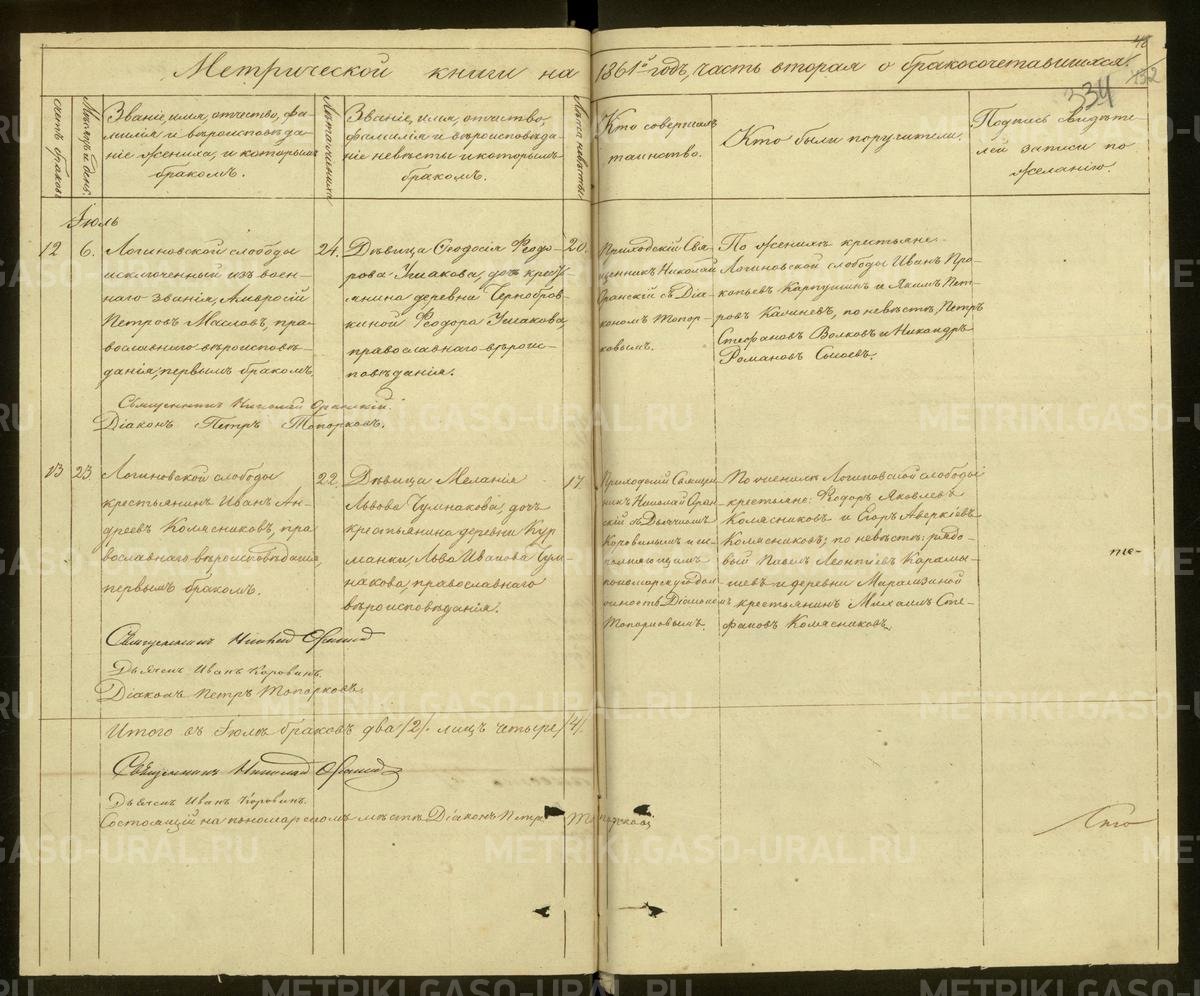 Метрической книги на 1861й годъ, часть вторая о бракосочетавшихся.
48
152
334
счетъ браковъ
Мѣсяцъ и день.
Званіе, имя, отчество, фа-
милія и вѣроисповѣда-
ніе жениха, и которымъ
бракомъ.
Лѣта жениха
Званіе, имя, отчество,
фамилія и вѣроисповѣда-
ніе невѣсты и которымъ
бракомъ.
Лѣта невѣсты
Кто совершалъ
таинство.
Кто были поручители.
Подпись свидѣте
лей записи по
желанію.
Іюль
12
6.
Логиновской слободы
исключенный изъ воен-
наго званія, Амвросій
Петровъ Масловъ, пра-
вославнаго вѣроисповѣ-
данія, первымъ бракомъ.
24.
Дѣвица Ѳеодосія Ѳеодо-
рова Ушакова, дочь крестья
янина деревни Чернобров-
киной Ѳеодора Ушакова,
православнаго вѣроис-
повѣданія.
20.
Приходскій Свя-
щенникъ Николай
Оранскій съ Діа-
кономъ Топор-
ковымъ.
По женихѣ крестьяне
Логиновской слободы Иванъ Про-
копьевъ Карпушинъ и Якимъ Пет-
ровъ Калиневъ, по невѣстѣ, Петръ
Стефановъ Волковъ и Никандръ
Романовъ Сысоевъ.
Священникъ Николай Оранскій.
Діаконъ Петръ Топорковъ.
13
23.
Логиновской слободы
крестьянинъ Иванъ Ан-
дреевъ Колясниковъ, пра
вославнаго вѣроисповѣданія,
первымъ бракомъ.
22.
Дѣвица Меланія
Львова Чумнакова, дочь
крестьянина деревни Кур
манки Льва Иванова Чум-
накова, православнаго
вѣроисповѣданія.
17
Приходскій Священ
никъ Николай Оран
скій съ Дьячкомъ
Коровинымъ и ис
полняющимъ
пономарскую дол
жность Діакономъ
Топорковымъ.
По женихѣ Логиновской слободы
крестьяне: Ѳедоръ Яковлевъ
Колясниковъ и Егоръ Аверкіевъ
Колясниковъ; по невѣстѣ: рядо-
вый Павелъ Леонтіевъ Карамы-
шевъ и деревни Марамзиной
крестьянинъ Михаилъ Сте-
фановъ Колясниковъ.
Священникъ Николай Оранскій
Дьячекъ Иванъ Коровинъ.
Діаконъ Петръ Топорковъ.
Итого въ Іюлѣ браковъ два /2/. лицъ четыре /4/.
Священникъ Николай Оранскій
Дьячекъ Иванъ Коровинъ.
Состоящій на пономарскомъ мѣстѣ Діаконъ Петръ Топорковъ
METRIKI.GASO-URAL.RU